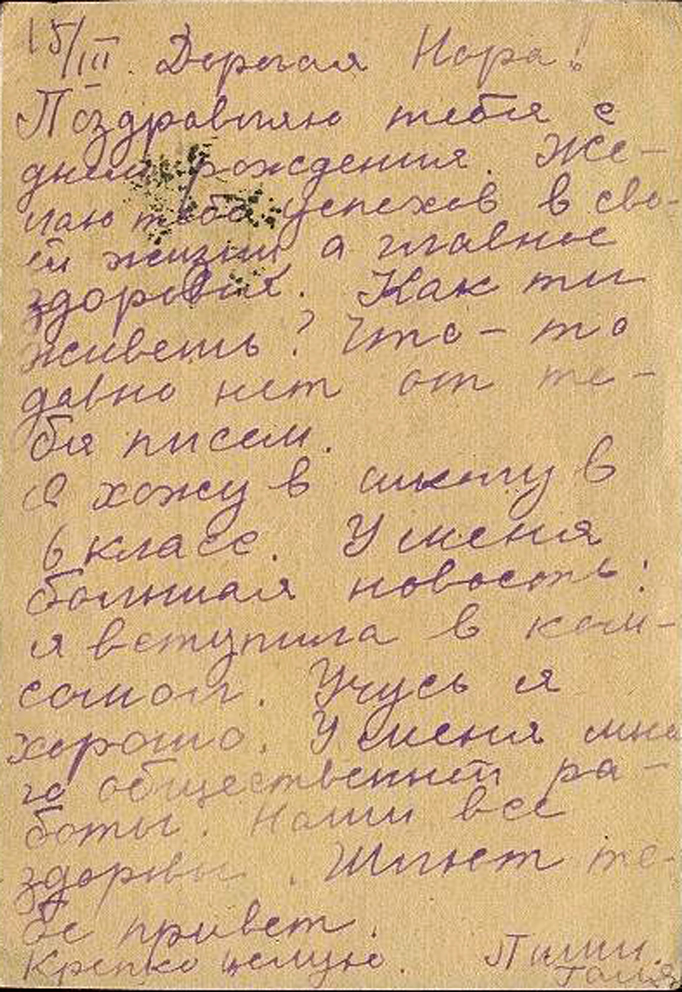 15/III. Дорогая Нора!
Поздравляю тебя с
днем рождения. Же-
лаю тебе успехов в сво-
ей жизни а главное
здоровья. Как ты
живешь? Что-то
давно нет от те-
бя писем.
Я хожу в школу в
6 класс. У меня
большая новость:
я вступила в ком-
сомол. Учусь я
хорошо. У меня мно
го общественной ра-
боты. Наши все
здоровы. Шлют те-
бе привет.
Крепко целую. Пиши.
Галя